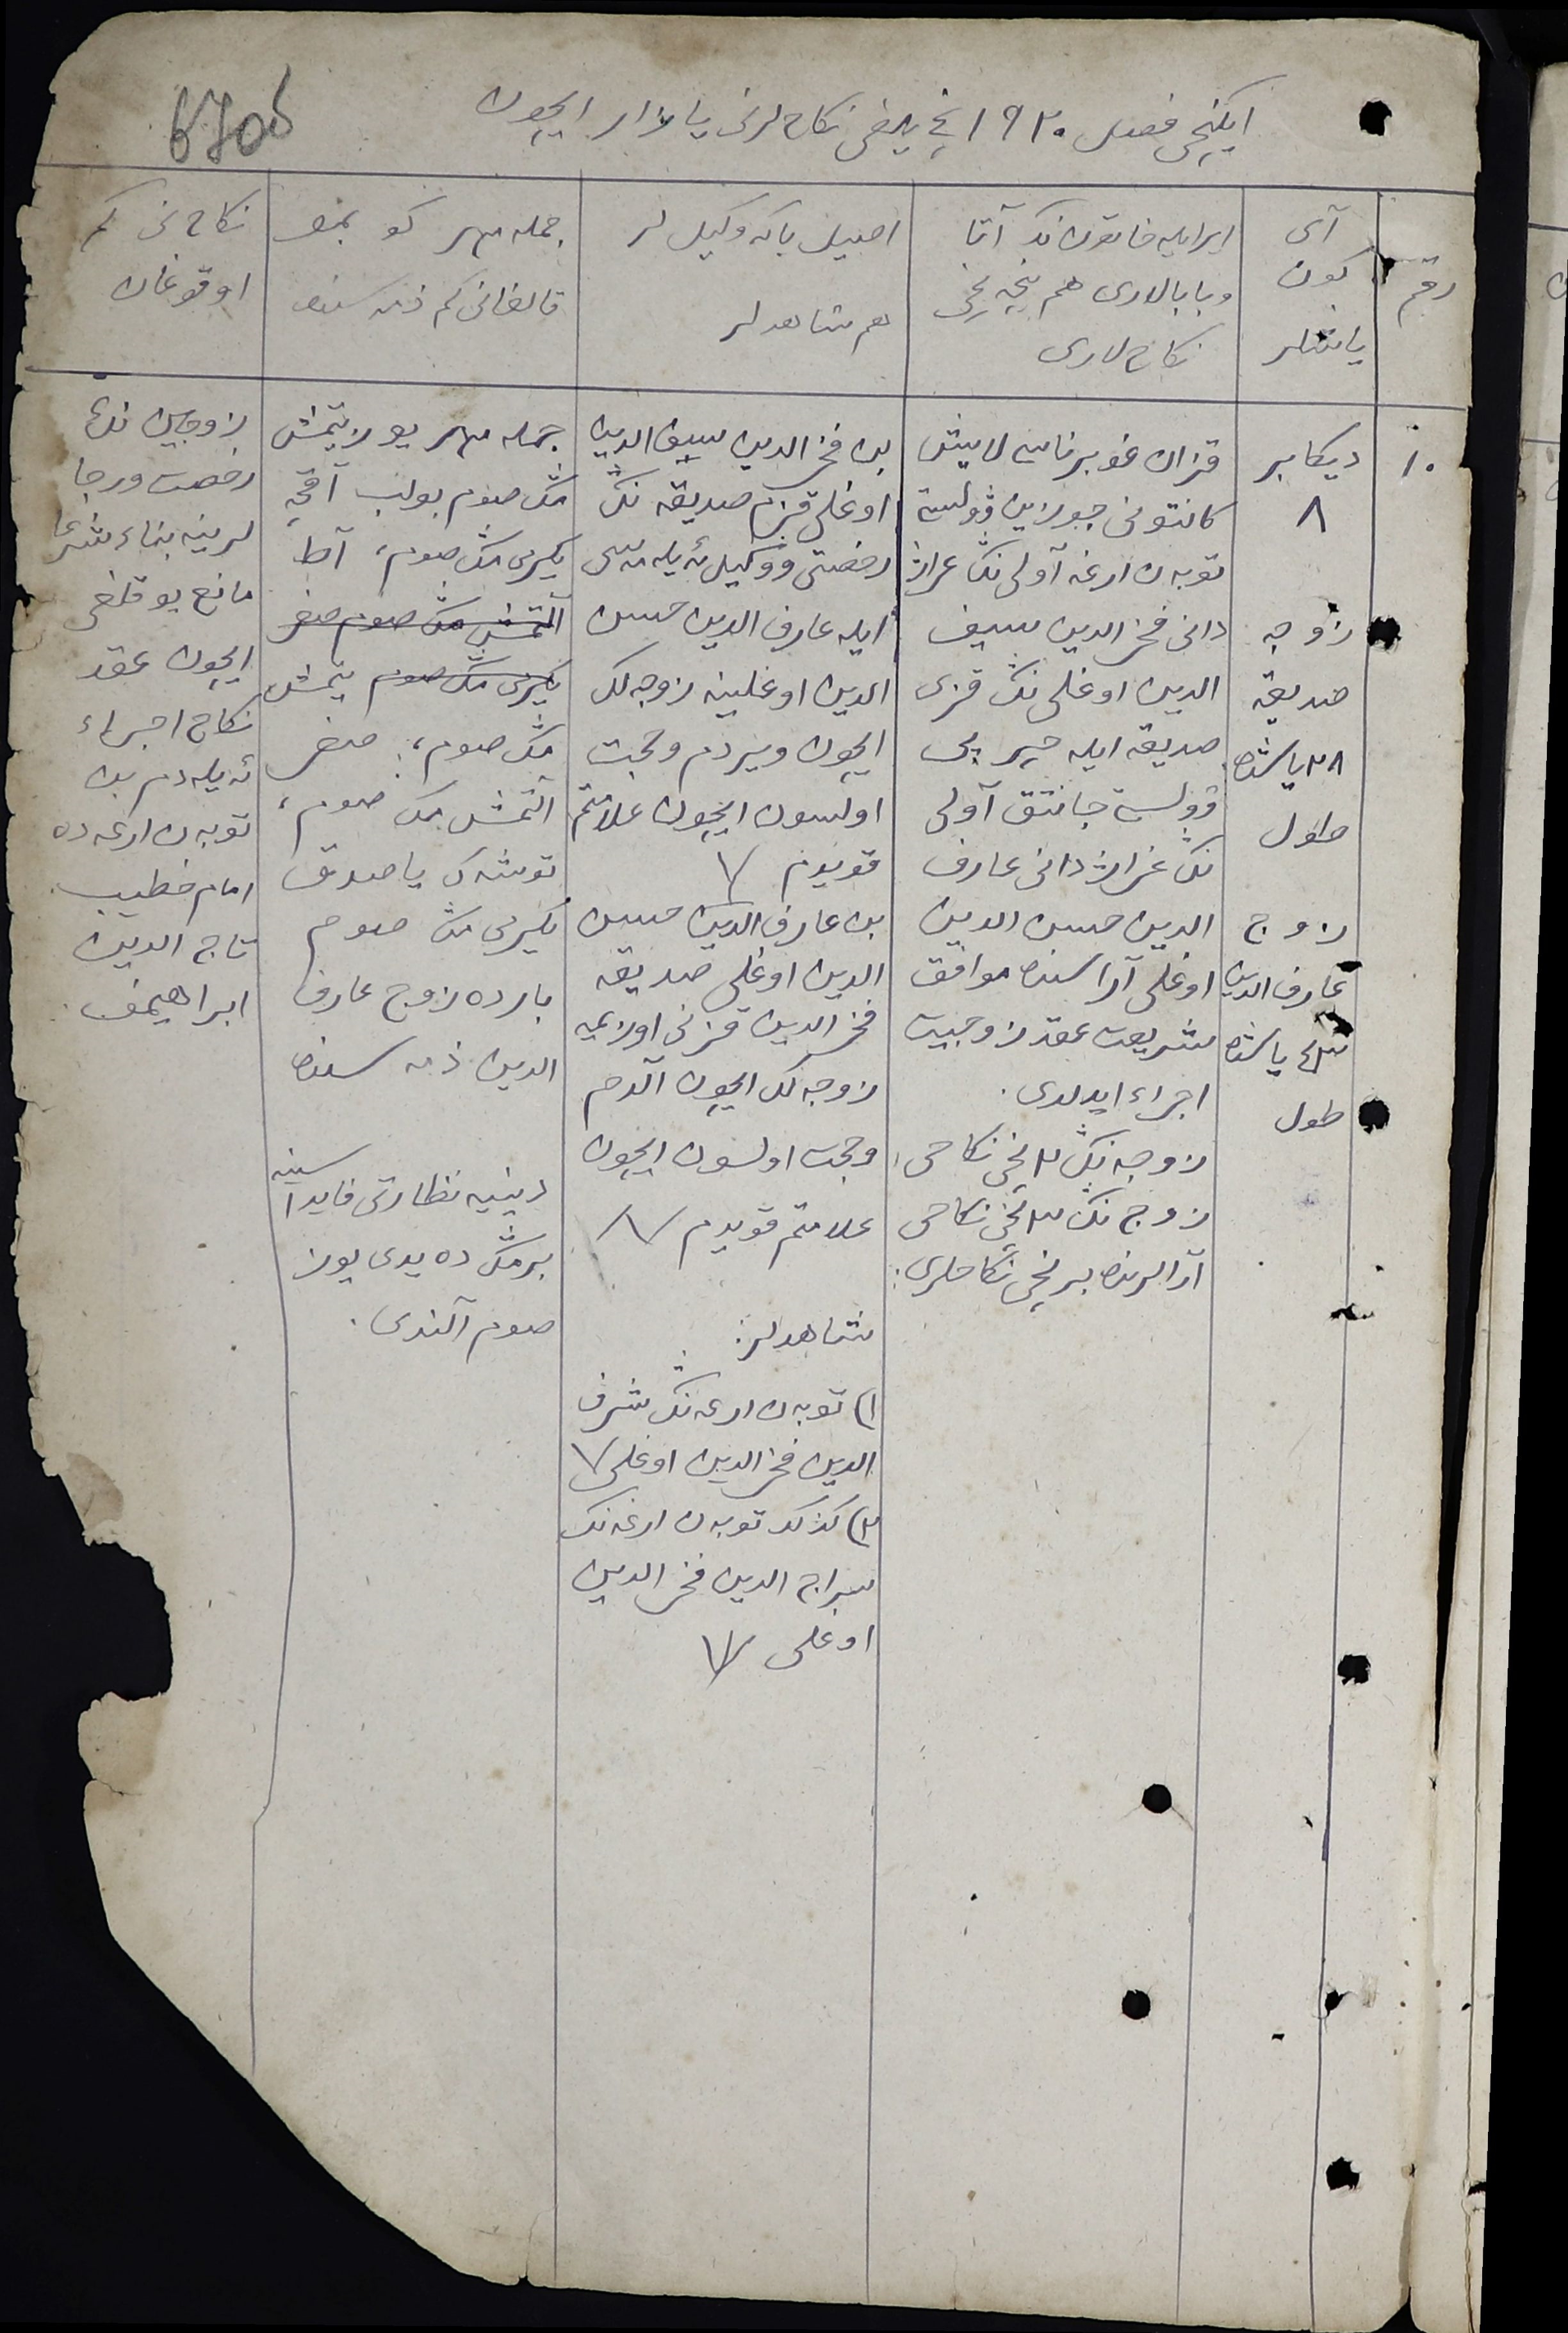 ایکنچی فصل ۱۹۲۰ نچی یلغی نکاح لرنی یازار ایچون
رقم
آی
کون
یاشلر
ایرایله خاتون نڭ آتا
وبابالاری هم نیچه نچی
نکاح لاری
اصیل یاکه وکیل لر
هم شاهدلر
جمله مهر کو بمو
قالغانی کم ذمه سنده
نکاح نی کم
اوقوغان
۱۰
دیکابر
۸
زوجه
صدیقه
۲۸ یاشنده
طول
زوج
عارف الدین
یاشنده
طول
قزان غوبرناسی لایش
کانتونی جورین ڤولست
توبه ن ارغه آولی نڭ غراژ
دانی فخر الدین سیف
الدین اوغلی نڭ قزی
صدیقه ایله
ڤولست آولی
نڭ غراژدانی عارف
الدین حسن الدین
اوغلی آراسنده موافق
شریعت عقد زوجیت
اجراء ایدلدی.
زوجه نڭ ۲ نچی نکاحی،
زوج نڭ ۲ نچی نکاحی
آرالرنده برنچی نکاحلری:
بن فخر الدین سیف الدین
اوغلی قزم صدیقه نڭ
رخصتی ووکیل ئه یله مه سی
ایله عارف الدین حسن
الدین اوغلینه زوجه لک
ایچون ویردم وحجت
اولسون ایچون علامتم
قویدم
بن عارف الدین حسن
الدین اوغلی صدیقه
فخر الدین قزنی اوزیمه
زوجه لک ایچون آلدم
وحجت اولسون ایچون
علامتم قویدم
شاهدلر:
۱) توبه ن ارغه نڭ شرف
الدین فخر الدین اوغلی
۲) کذلک توبه ن ارغه نڭ
سراج الدین فخر الدین
اوغلی
جمله مهر یوز یتمش
مڭ صوم بولب آقچه
یکرمی مڭ صوم، آط
آلتمش مڭ صوم صغر
یکرمی مڭ صوم یتمش
مڭ صوم، صغر
آلتمش مڭ صوم،
توشه ک یاصدق
یکرمی مڭ صوم
بارده زوج عارف
الدین ذمه سنده
دینیه نظارتی فایداسینه
برمڭ ده یدی یوز
صوم آلندی.
زوجین نڭ
رخصت ورجا
لرینه بناء شرعا
مانع یوقلغی
ایچون عقد
نکاح اجراء
ئه یله دم بن
توبه ن ارغه ده
امام خطیب
تاج الدین
ابراهیمف.